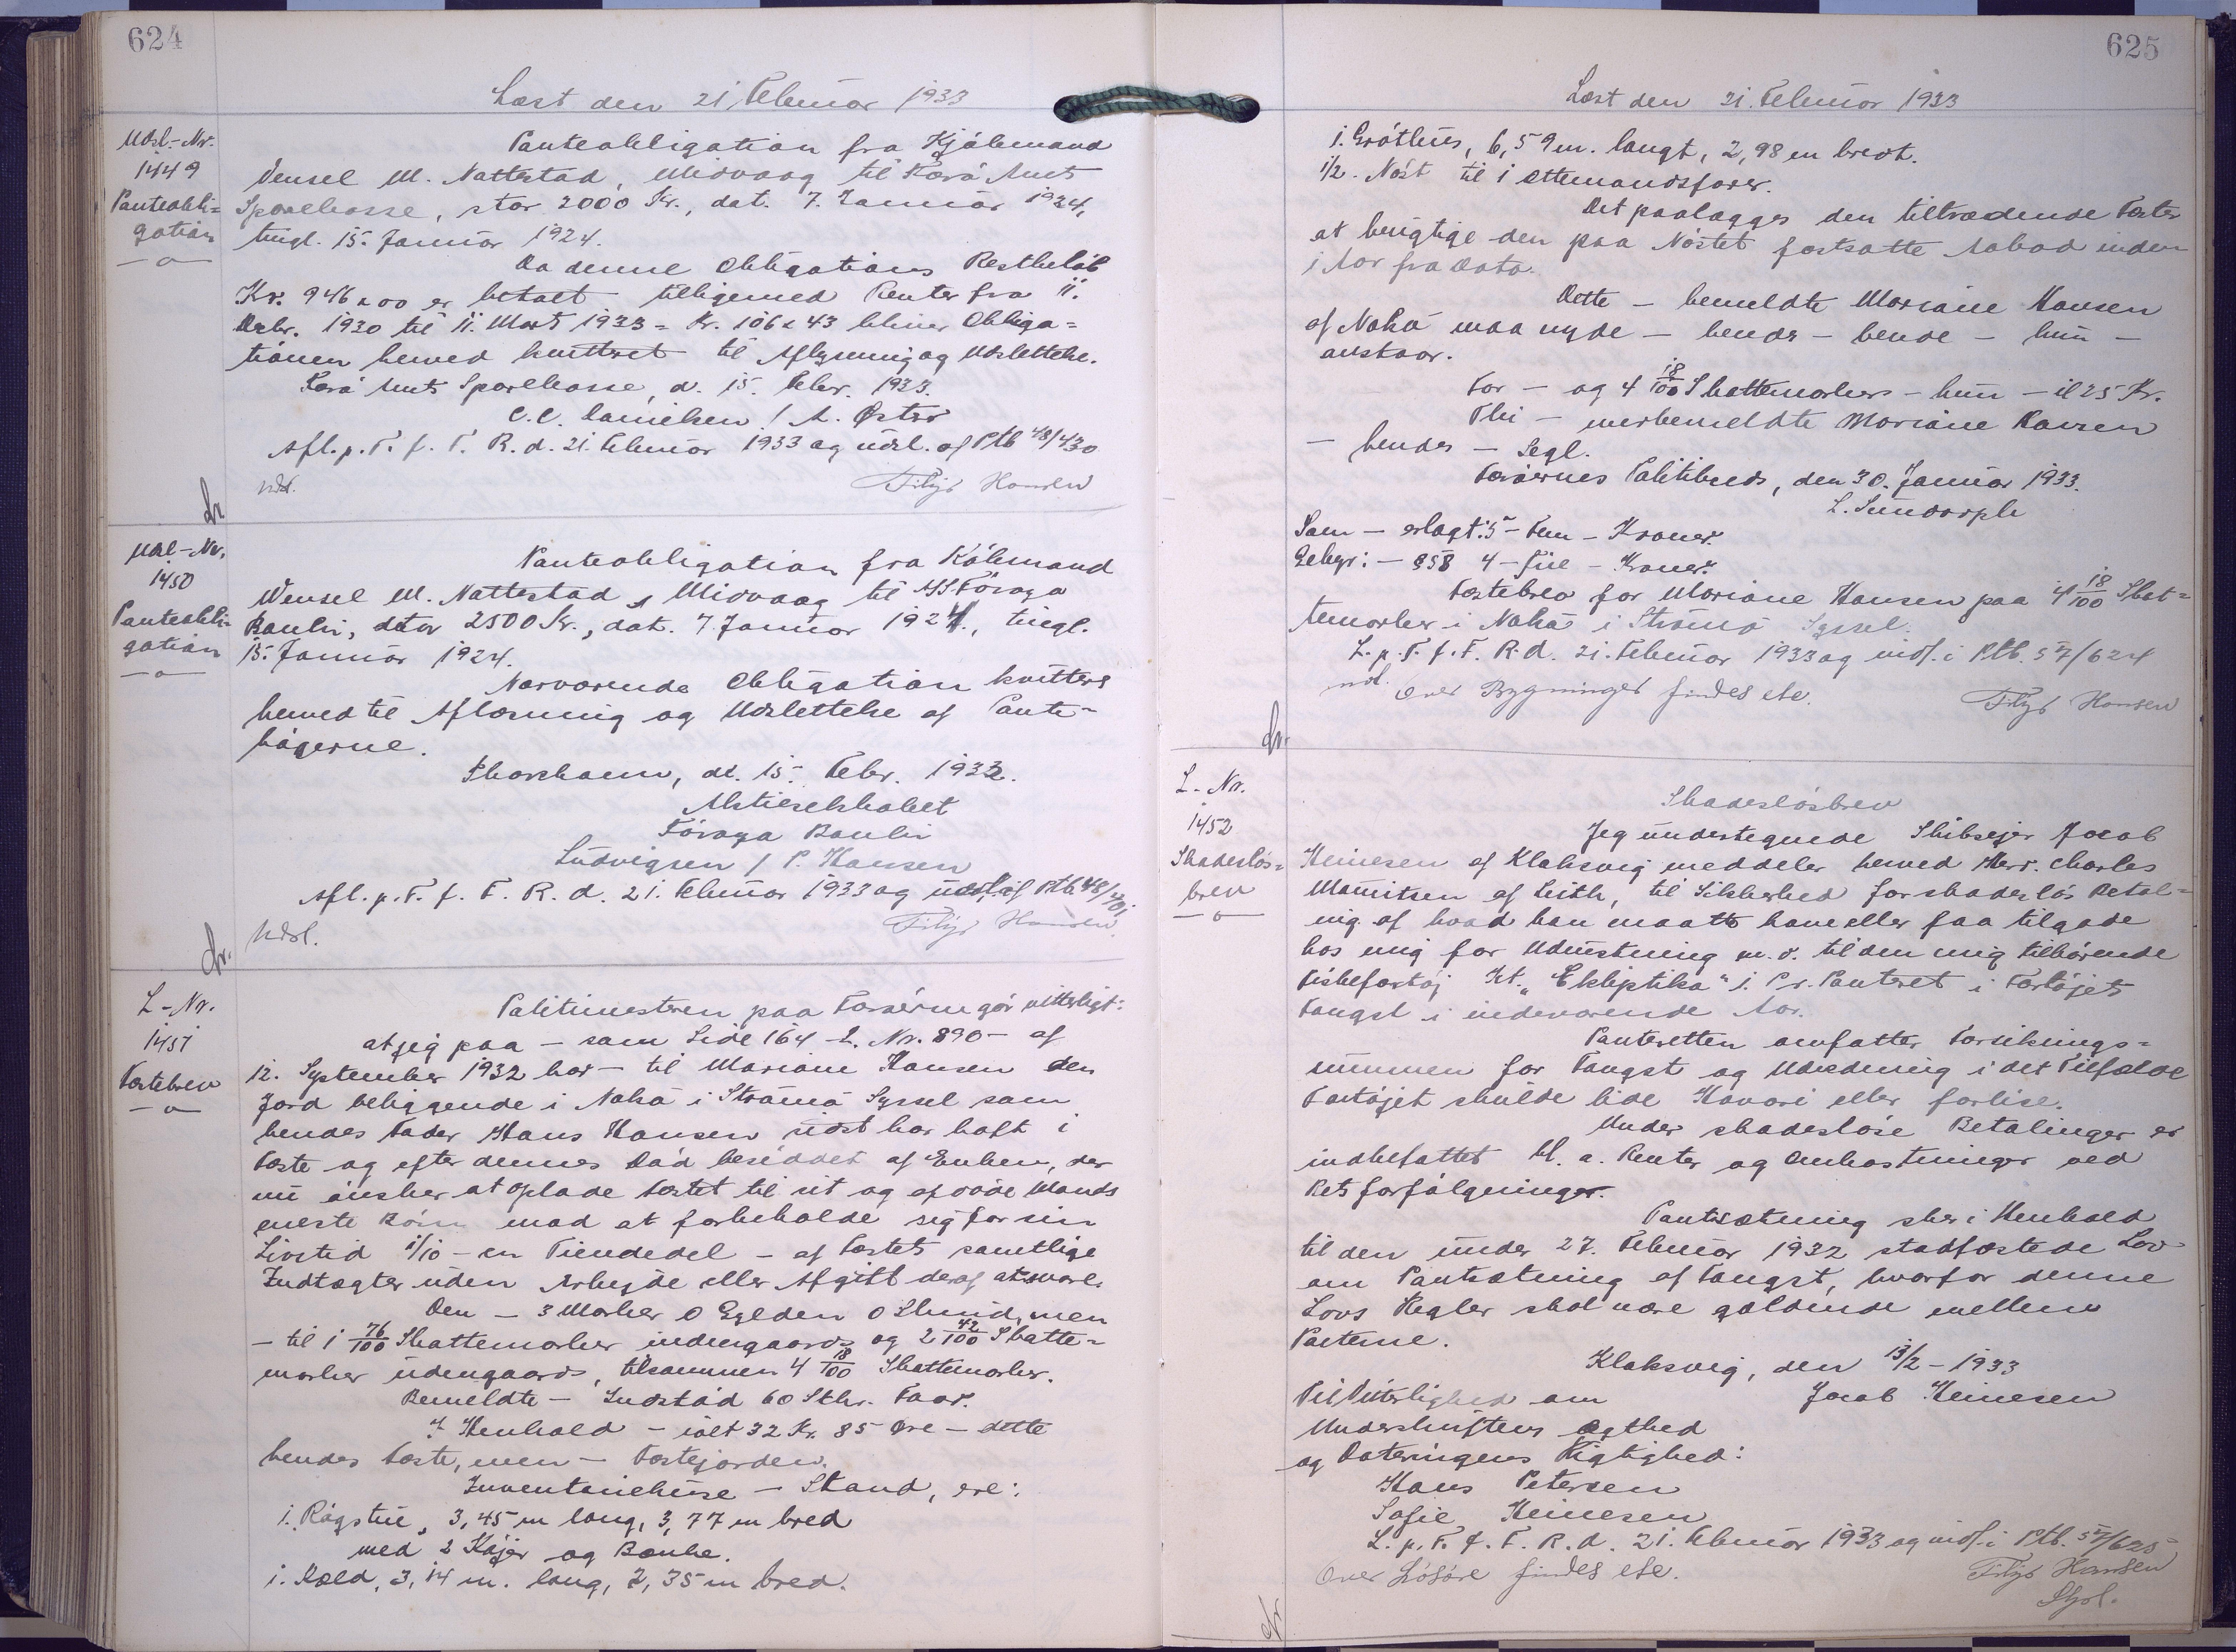 624
Læst den 21. Februar 1933
Udsl-Nr.
1449
Panteobli=
gation
Panteobligation fra Kjöbmand
Vensel M. Nattestad, Midvaag til Færø Amts
Sparekasse, stor 2000 Kr., dat. 7. Januar 1924,
tingl. 15. Januar 1924.
Da denne Obligations Restbelöb
Kr. 946 x 00 er betalt tilligemed Renter fra 11.
Decbr. 1930 til 11. Marts 1933 = Kr. 106 x 43 bliver Obliga=
tionen herved kvitteret til Aflysning og Udslettelse.
Færö Amts Sparekasse, d. 15. Febr. 1933.
C.C. Danielsen / A. Öster
Afl. p. T. f. F. R. d. 21. Februar 1933 og udsl. af Ptb 48/430
Udsl.
Filip Hansen
Udsl-Nr.
1450
Panteobli-
gation
Panteobligation fra Köbmand
Wensel M. Nattestad, Midvaag til A/S Föroya
Banki, stor 2500 Kr., dat. 7 Januar 1924., tingl.
15. Januar 1924.
Nærværende Obligation kvitteres
herved til Aflæsning og Udslettelse af Pante-
bögerne.
Thorshavn, d. 15. Febr. 1933.
Aktieselskabet
Föroya Banki
Ludvigsen / P. Hansen
Afl. p. T. f. F. R. d. 21. Februar 1933 og udsl. af Ptb 48/431
Filip Hansen
Udsl.
L-Nr.
1451
Fæstebrev
Politimesteren paa Færöerne gör vitterligt:
at jeg paa - som Side 164 L. Nr. 890 - af
12. September 1932 har - til Mariane Hansen den
Jord beliggende i Nolsö i Strömö Syssel som
hendes Fader Hans Hansen sidst har haft i
Fæste og efter dennes Död besiddet af Enken, der
nu önsker at oplade Fæstet til sit og afdöde Mands
eneste Barn mod at forbeholde sig for sin
Livstid 1/10 - en Tiendedel - af Fæstets samtlige
Indtægter uden Arbejde eller Afgift deraf at svare.
Den - 3 Marker 0 Gylden 0 Skind, men
- til 1 76/100 Skattemarker indengaards og 2 42/100 Skatte=
marker udengaards, tilsammen 4 18/100 Skattemarker.
Bemeldte - Indstöd 60 Stkr. Faar.
I Henhold - ialt 32 Kr. 85 Øre - dette
hendes Fæste, men - Fæstejorden.
Inventariehuse - Stand, ere:
1. Rögstue, 3,45 m lang, 3,77 m bred
med 2 Köjer og Bænke.
1. Kold, 3,14 m. lang, 2,35 m bred.
625
Læst den 21. Februar 1933
1. Gróthus, 6,59 m. langt, 2,98 m bredt.
1/2. Nöst til 1 Ottemandsfarer.
Det paalægges den tiltrædende Fæster
at berigtige den paa Nöstet fortsatte Aabod inden
1 Aar fra Dato.
Dette - bemeldte Mariane Hansen
af Nolsö maa nyde - hendes - hende - hun -
anstaar.
For - og 4 18/100 Skattemarker - hun - il 25 Kr.
Thi - merbemeldte Mariane Hansen
- hendes - Segl.
Færöernes Politikreds, den 30. Januar 1933.
L. Sundorph
Som - erlagt: 5 - Fem - Kroner.
Gebyr: - §58 4 - Fire - Kroner.
Fæstebrev for Mariane Hansen paa 4 18/100 Skat=
temarker i Nolsö i Strömö Syssel.
L. p. T. f. F. R. d. 21. Februar 1933 og indf. i Ptb. 57/624
ndl. Over Bygninger findes ese.
Filip Hansen
L-Nr.
1452
Skadeslös=
brev
Skadeslösbrev
Jeg undertegnede Skibsejer Jacob
Heinesen af Klaksvig meddeler herved Herr. Charles
Mauritsen af Leith, til Sikkerhed for skadeslös Betal=
ing af hvad han maatte have eller faa tilgode
hos mig for Udrustning m. v. til den mig tilhörende
Fiskefartöj Kt. "Ekliptika" 1. Pr. Panteret i Fartöjets
Fangst i indeværende Aar.
Panteretten omfatter Forsikrings=
summen for Fangst og Udredning i det Tilfælde
Fartöjet skulde lide Havari eller forlise.
Under skadeslöse Betalinger er
indbefattet bl. a. Renter og Omkostninger ved
Retsforfölgninger.
Pantsætning sker i Henhold
til den under 27. Februar 1932 stadfæstede Lov
om Pantsætning af Fangst, hvorfor denne
Lovs Regler skal være gældende mellem
Parterne.
Klaksvig, den 13/2 - 1933
Til Vitterlighed om
Jacob Heinesen
Underskriftens Ægthed
og Dateringens Rigtighed:
Hans Petersen
Sofie Heinesen
L. p. T. f. F. R. d. 21. Februar 1933 og indf. i Ptb. 57/625
Over Lösöre findes ese.
Filip Hansen